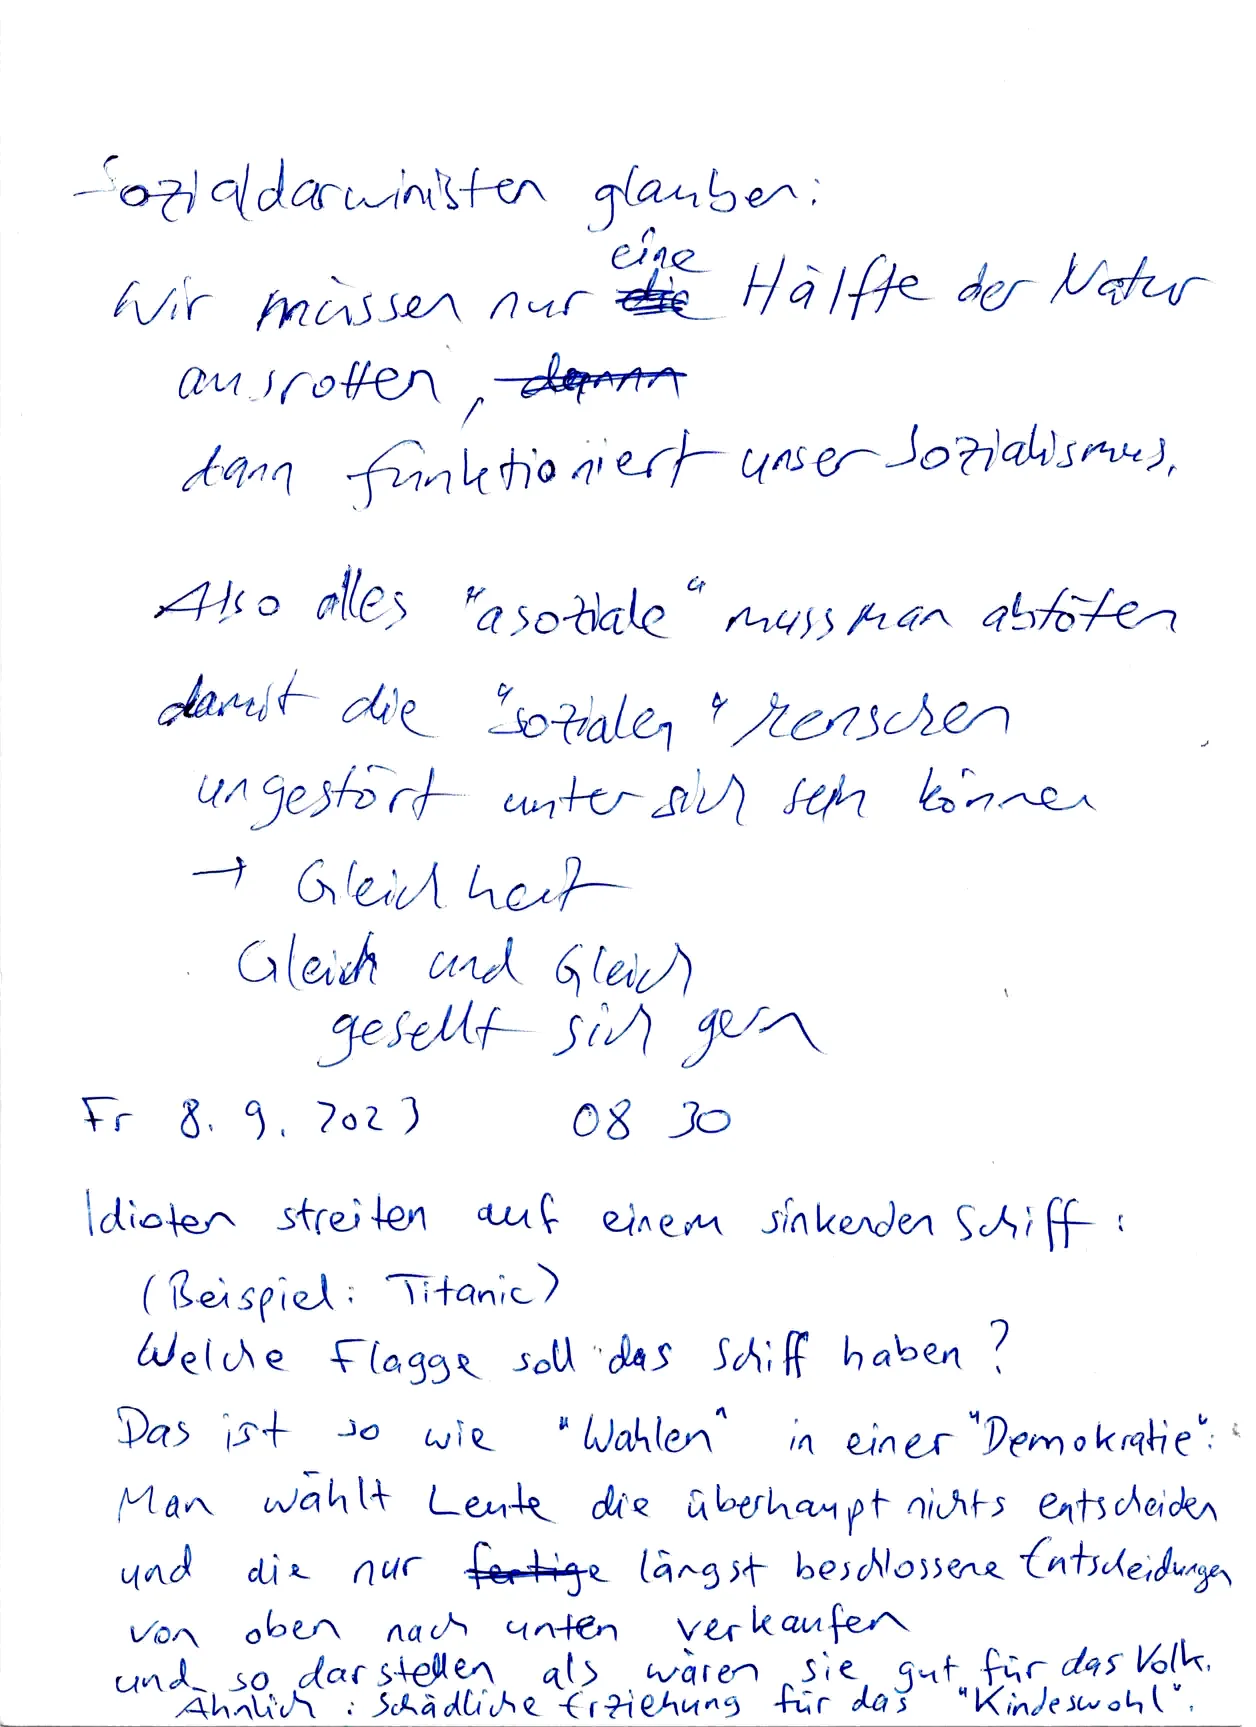 Sozialdarwinisten glauben:
eine
Wir müssen nur die Hälfte der Natur
ausrotten, dannn
dann funktioniert unser Sozialismus.
Also alles "asoziale" muss man abtöten
damit die "sozialen" Menschen
ungestört unter sich sein können
→ Gleichheit
Gleich und Gleich
gesellt sich gern
Fr 8. 9. 2023 08 30
Idioten streiten auf einem sinkenden Schiff:
(Beispiel: Titanic)
Welche Flagge soll das Schiff haben?
Das ist so wie "Wahlen" in einer "Demokratie":
Man wählt Leute die überhaupt nichts entscheiden
und die nur fertige längst beschlossene Entscheidungen
von oben nach unten verkaufen
und so darstellen als wären sie gut für das Volk.
Ähnlich: Schädliche Erziehung für das "Kindeswohl".